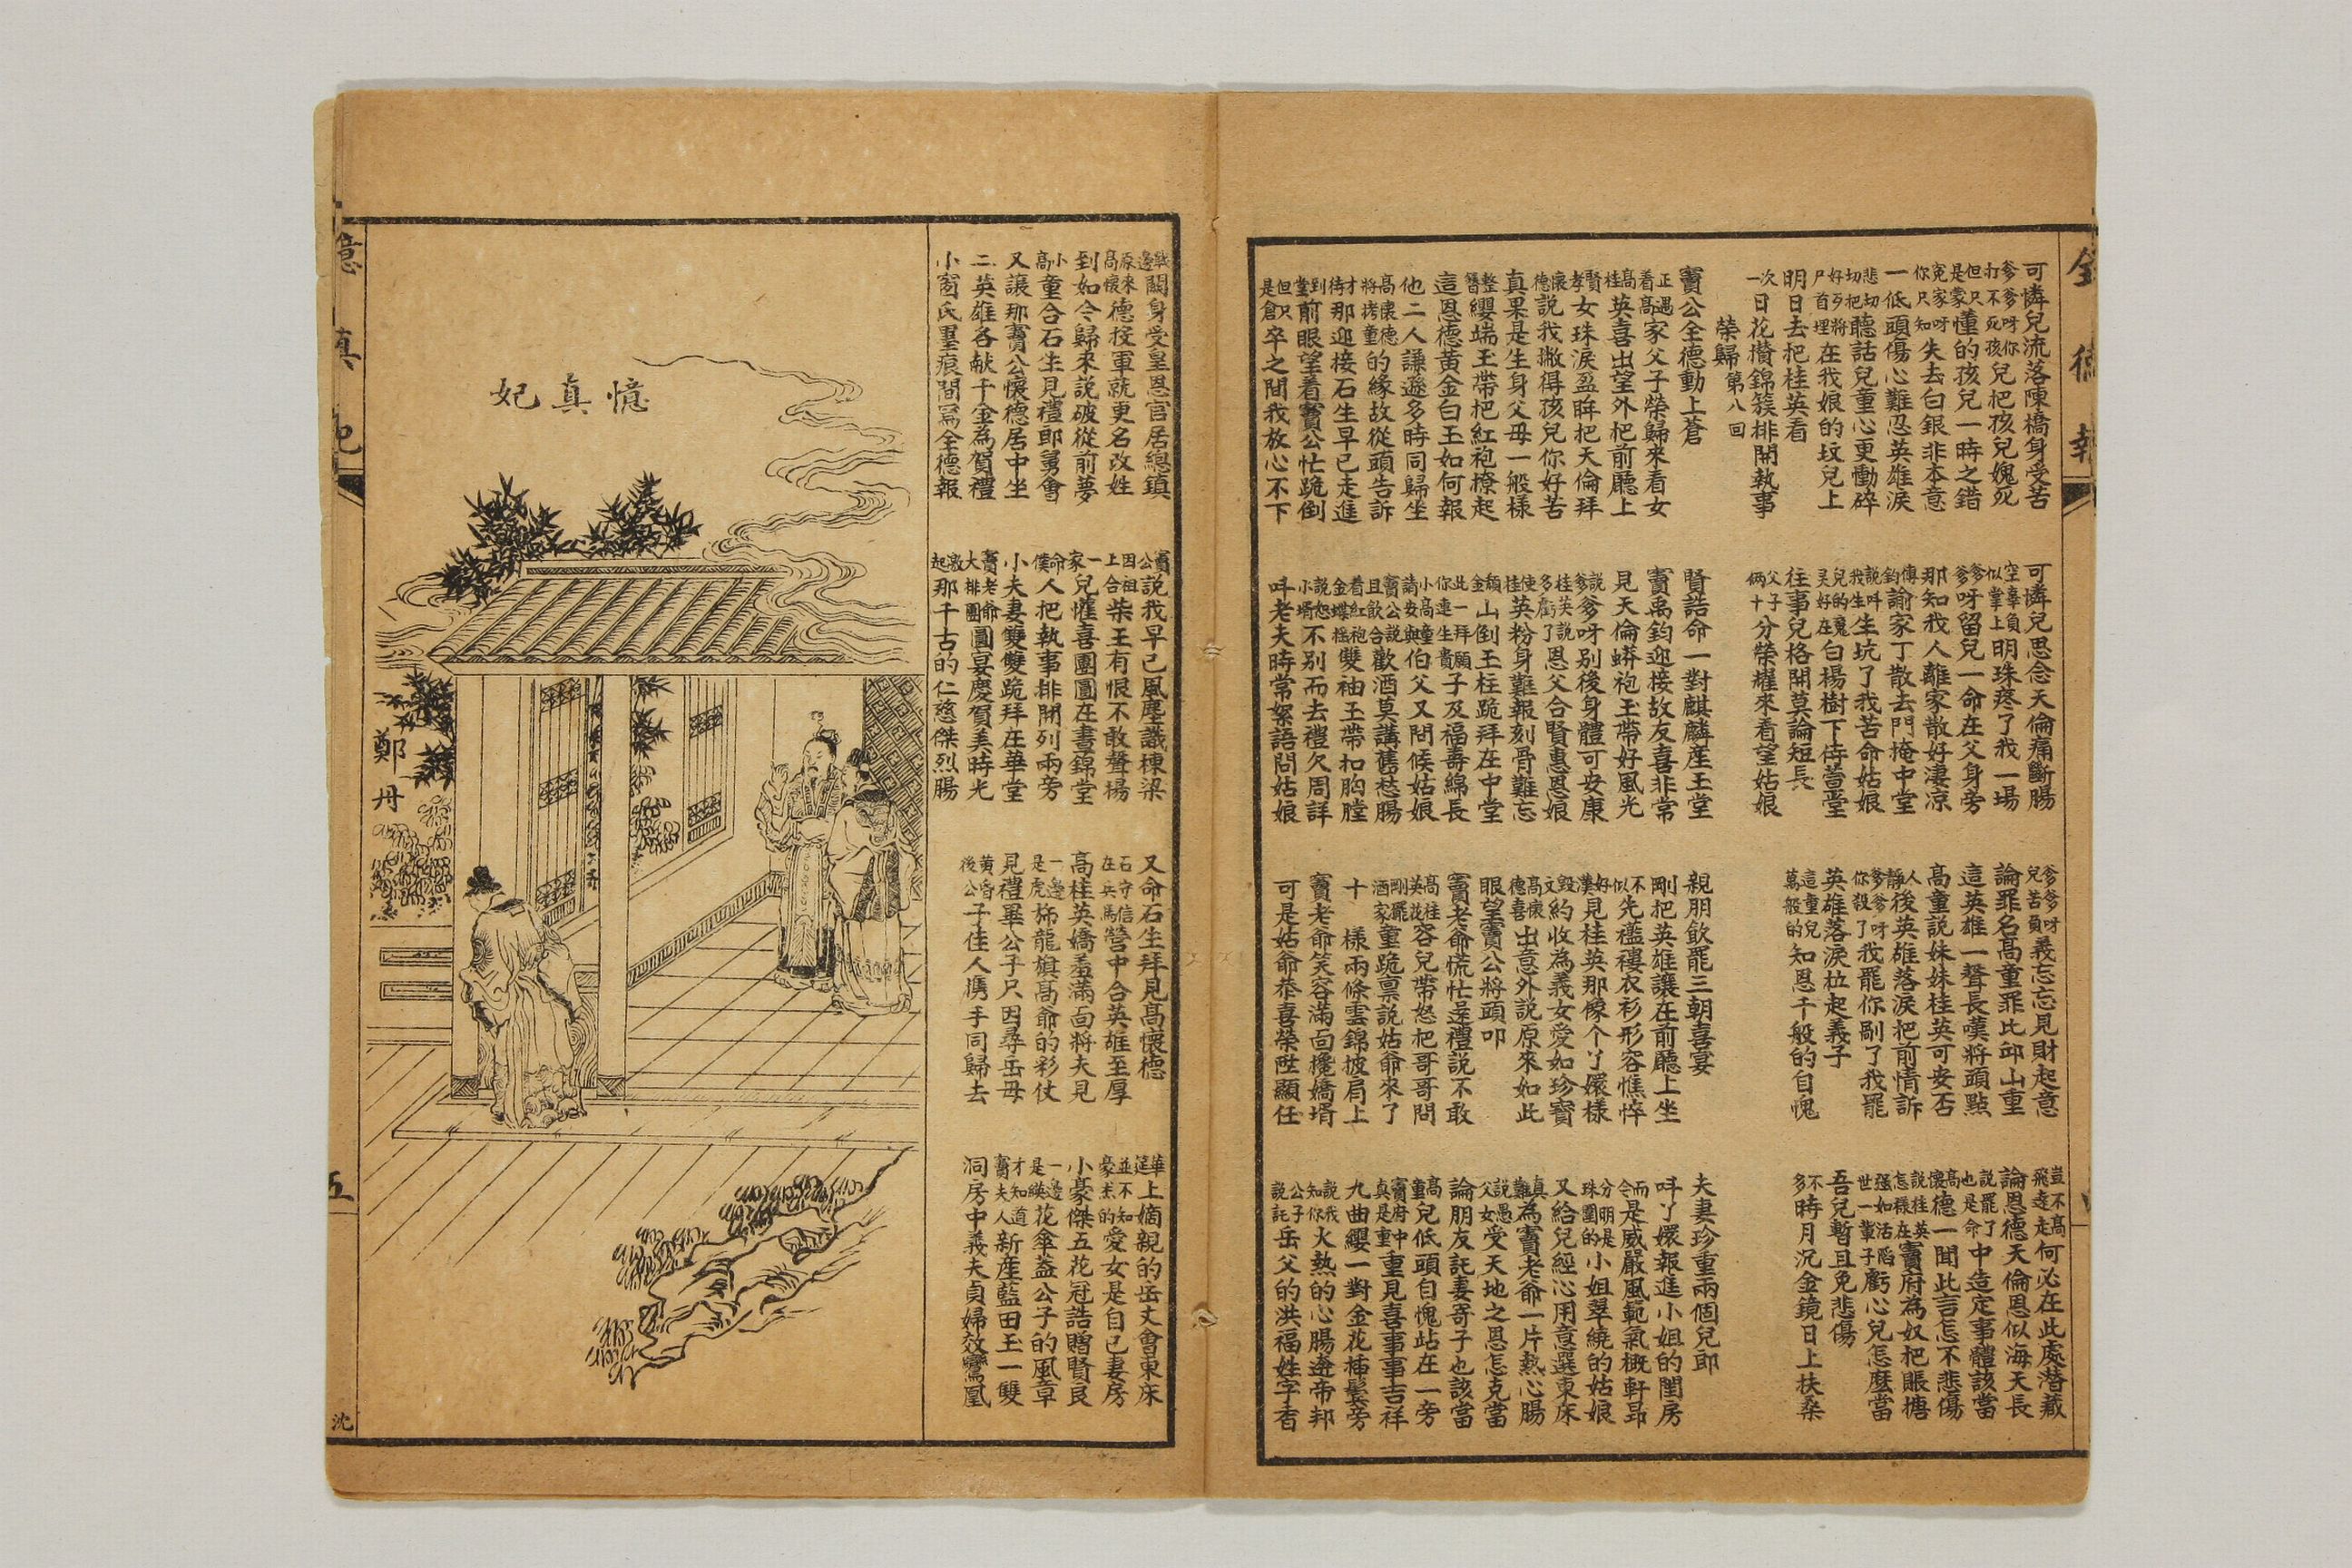 全德報
可憐兒流落陳橋身受苦 可憐兒思念天倫痛斷腸 爹爹呀兒苦負義忘忘見財起意 豈不高飛遠走何必在此處潛藏
爹爹呀你打不死孩兒把孩兒媿死 空辜負似掌上明珠疼了我一場 論罪名高童罪比邱山重 論恩德天倫恩似海天長
但只是蒙懂的孩兒一時之錯 爹爹呀留兒一命在父身旁 這英雄一聲長嘆將頭點 說罷了也是命中造定事體該當
冤家呀你只知失去白銀非本意 那知我人離家散好淒涼 高童說妹妹桂英可安否 高懷德一聞此言怎不悲傷
一低頭傷心難忍英雄淚 傳鈞諭家丁散去門掩中堂 人靜後英雄落淚把前情訴 說桂英怎樣在竇府為奴把賬搪
悲切切把聽話兒童心更慟碎 說呌我生生坑了我苦命姑娘 爹爹呀你殺了我罷你剮了我罷 强如活陷世一輩子虧心兒怎麼當
好歹將尸首埋在我娘的坟兒上 兒的魂灵好在白楊樹下侍萱堂 英雄落淚拉起義子 吾兒暫且免悲傷
明日去把桂英看 往事兒格開莫論短長 這童兒萬般的知恩千般的自愧 不多時月沉金鏡日上扶桑
次一日花攢錦簇排開執事 父子倆十分榮耀來看望姑娘
榮歸 第八回
竇公全德動上蒼 賢誥命一對麒麟產玉堂 親朋飲罷三朝喜宴 夫妻珍重兩個兒郎
正遇着高家父子榮歸來看女 竇禹鈞迎接故友喜非常 剛把英雄讓在前廳上坐 呌丫嬛報進小姐的閨房
高桂英喜出望外把前廳上 見天倫蟒袍玉帶好風光 不似先襤褸衣衫形容憔悴 而今是威嚴風範氣概軒昂
賢孝女珠淚盈眸把天倫拜 說爹爹呀別後身體可安康 好漢見桂英那像个丫嬛樣 分明是珠圍的小姐翠繞的姑娘
懷德說我撇得孩兒你好苦 桂英說多虧了恩父合賢惠恩娘 毀文約收為義女愛如珍寶 又給兒經心用意選東床
真果是生身父母一般樣 使桂英粉身難報刻骨難忘 高懷德喜出意外說原來如此 真難為竇老爺一片熱心腸
整簪纓端玉帶把紅袍撩起 頹金山倒玉柱跪拜在中堂 眼望竇公將頭叩 說愚父女受天地之恩怎克當
這恩德黃金白玉如何報 此一拜願你連生貴子及福壽綿長 竇老爺慌忙還禮說不敢 論朋友託妻寄子也該當
他二人謙遜多時同歸坐 小高童請安與伯父又問候姑娘 高桂英花容兒帶怒把哥哥問 高童兒低頭自愧站在一旁
高懷德將拷童的緣故從頭告訴 竇公說且飲合歡酒莫講舊愁腸 剛罷酒家童跪稟說姑爺來了 竇府中真是重重見喜事事吉祥
才待那迎接石生早已走進 着紅袍金蝶搖雙袖玉帶扣胸膛 十樣兩條雲錦披肩上 九曲纓一對金花插鬢旁
到堂前眼望着竇公忙跪倒 說恕小壻不別而去禮欠周詳 竇老爺笑容滿面攙嬌壻 說我知你火熱的心腸遊帝邦
但只是倉卒之間我放心不下 呌老夫時常絮語問姑娘 可是姑爺恭喜榮陞顯任 公子說託岳父的洪福姓字香
戰邊關身受皇恩官居總鎮 竇公說我早已風塵識棟梁 又命石生拜見高懷德 華筵上嫡親的岳丈會東床
原來高懷德投軍就更名改姓 因祖上合柴王有恨不敢聲揚 石守信在兵馬營中合英雄至厚 並不知豪杰的愛女是自己妻房
到如今歸來說破從前夢 一家兒懽喜團圓在晝錦堂 高桂英嬌羞滿面將夫見 小豪傑五花冠誥贈賢良
小高童合石生見禮郎舅會 命僕人把執事排開列兩旁 一邊是虎旆龍旗高爺的彩仗 一邊是綉花傘葢公子的風章
又讓那竇公懷德居中坐 小夫妻雙雙跪拜在華堂 見禮畢公子只因尋岳母 才知道竇夫人新產藍田玉一雙
二英雄各献千金為賀禮 竇老爺大排團圓宴慶賀美時光 黃昏後公子佳人携手同歸去 洞房中義夫貞婦效鸞凰
小窗氏墨痕閒寫全德報 激起那千古的仁慈傑烈腸
憶真妃
鄭丹
憶真妃
五
沈